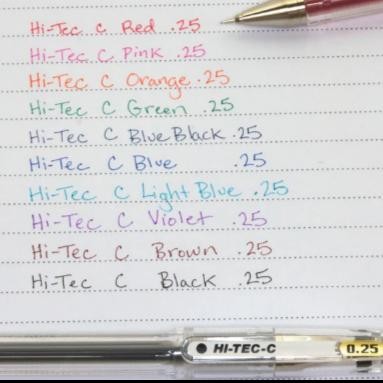 Hi-Tec C Red .25
Hi-Tec C Pink .25
Hi-Tec C Orange .25
Hi-Tec C Green .25
Hi-Tec C Blue Black .25
Hi-Tec C Blue .25
Hi-Tec C Light Blue .25
Hi-Tec C Violet .25
Hi-Tec C Brown .25
Hi-Tec C Black .25
HI-TEC-C 0.25